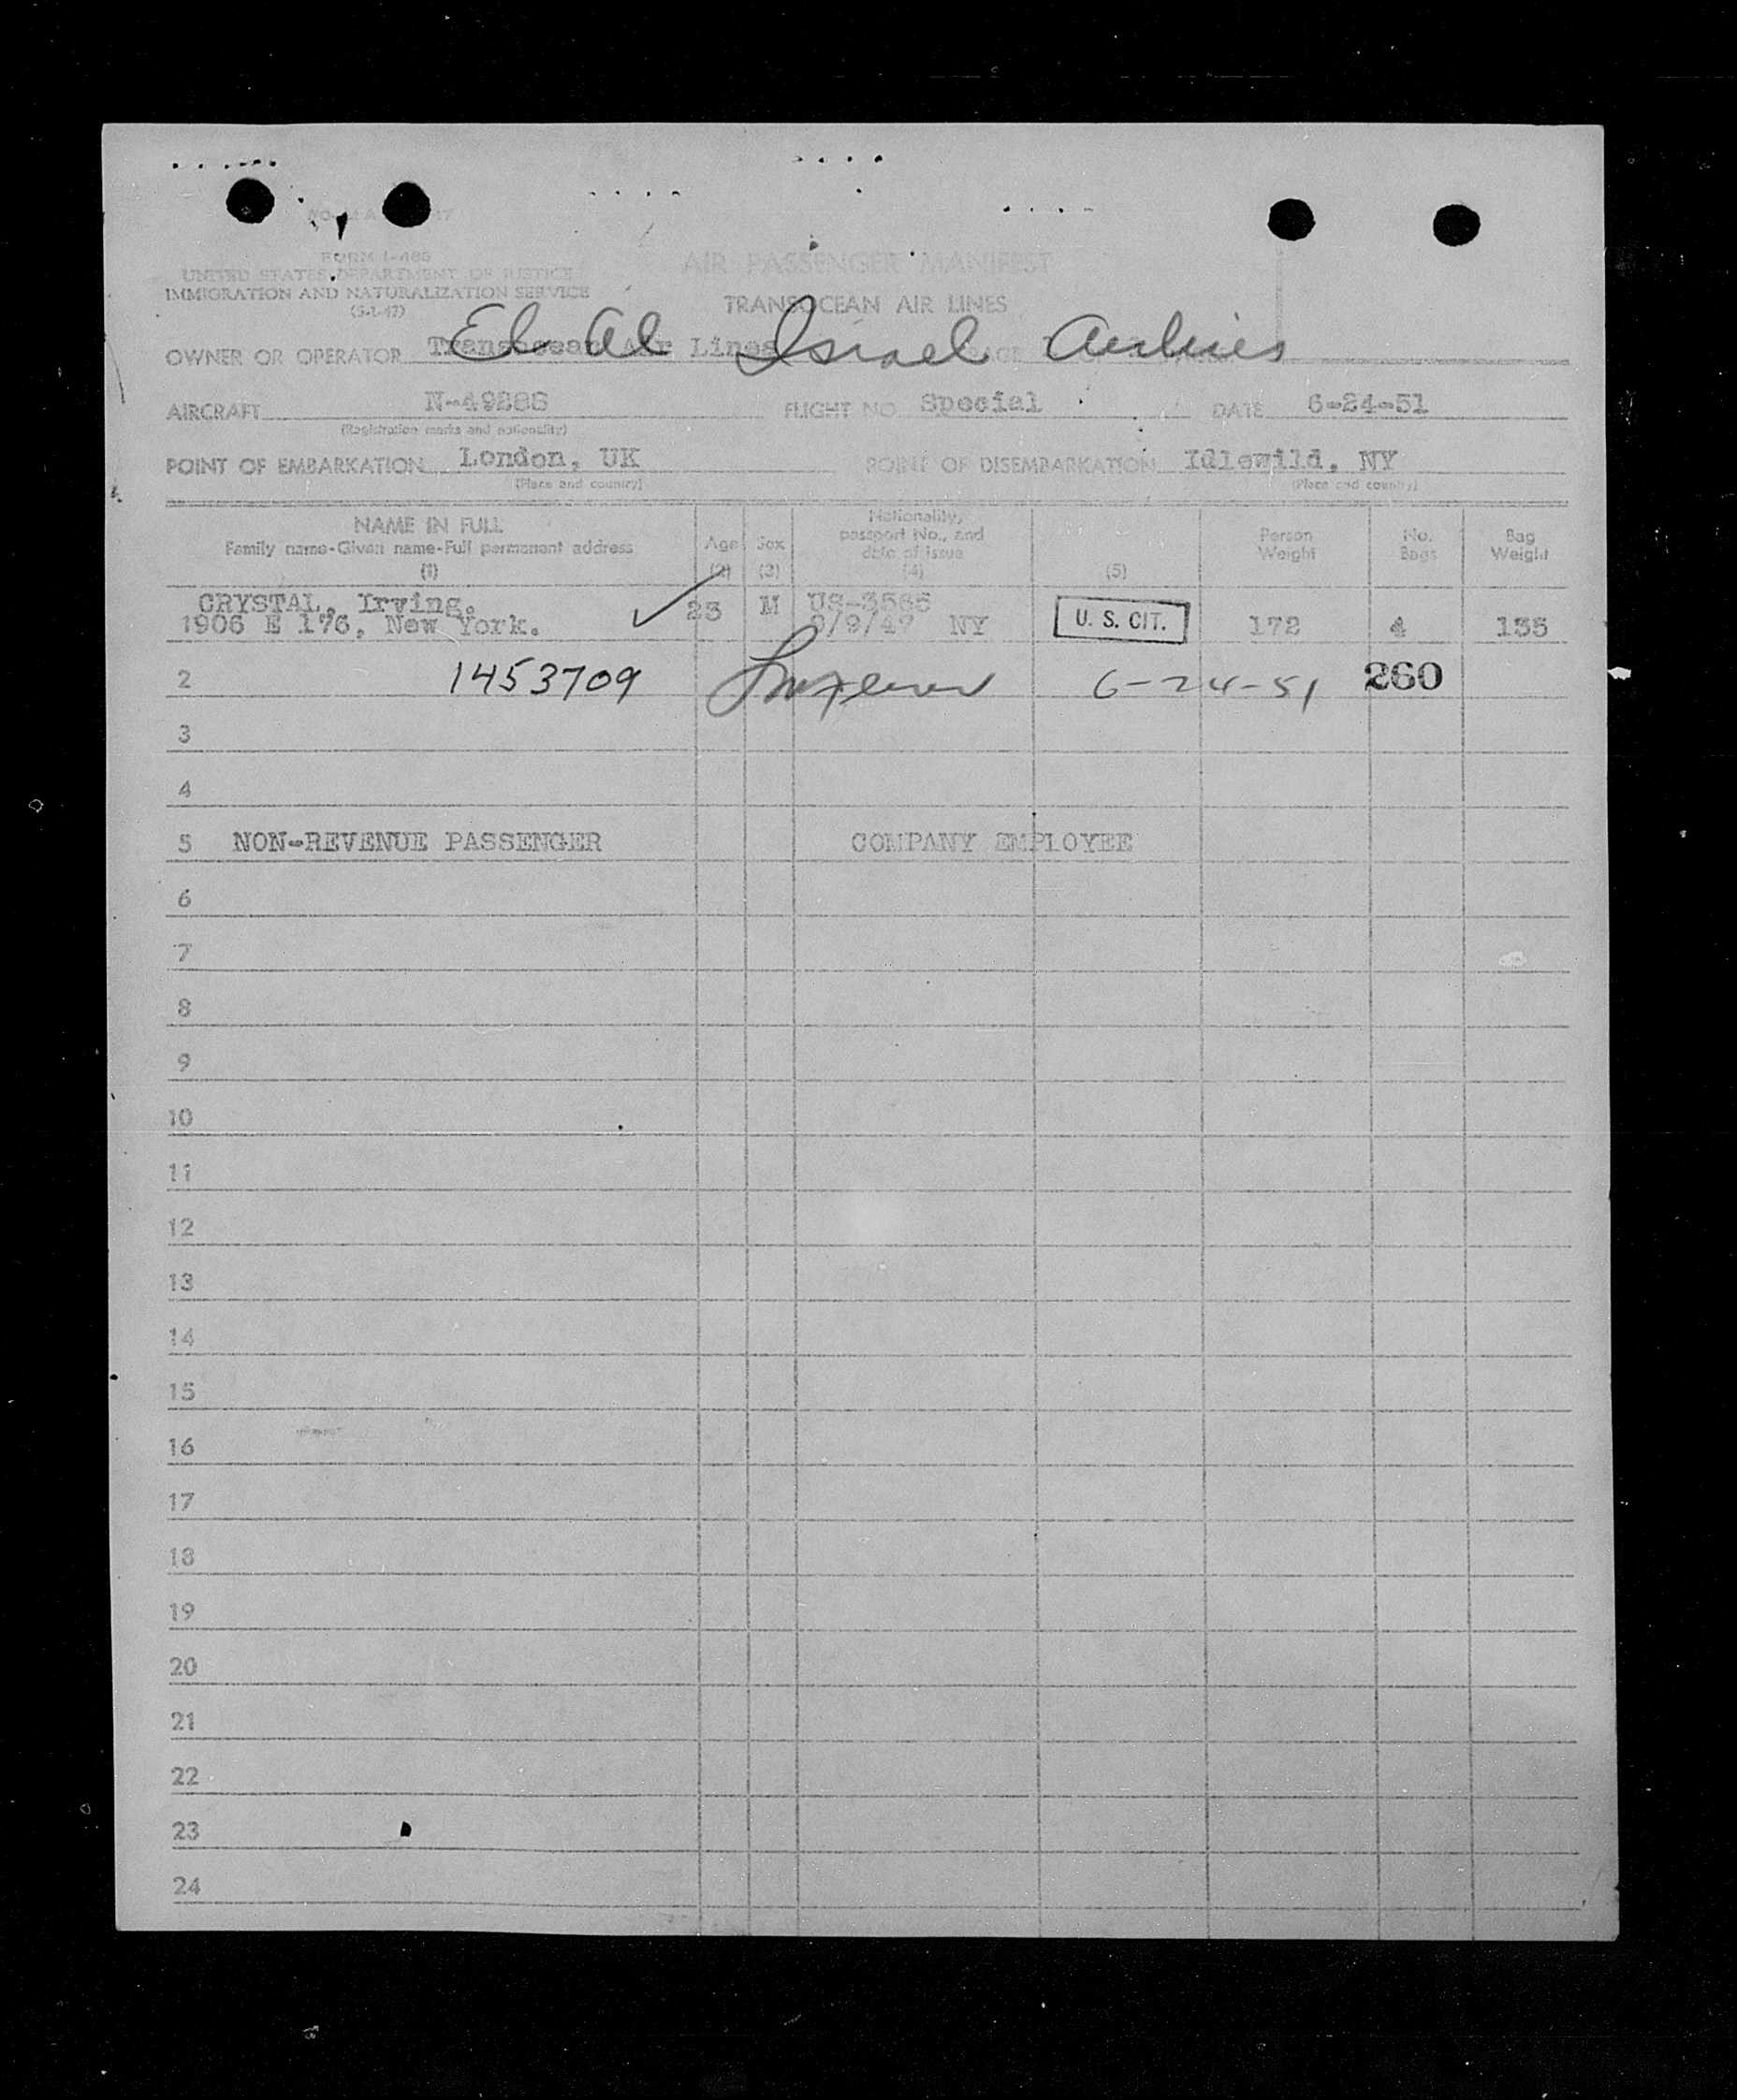 FORM I-466
UNITED STATES DEPARTMENT OF JUSTICE
IMMIGRATION AND NATURALIZATION SERVICE
(5-1-47)
AIR PASSENGER MANIFEST
TRANSOCEAN AIR LINES
OWNER OR OPERATOR Transocean Air Lines El Al Israel Airlines
AIRCRAFT N-49288 FLIGHT NO. Special DATE 6-24-51
(Registration marks and nationality)
POINT OF EMBARKATION London, UK POINT OF DISEMBARKATION Idlewild, NY
(Place and country) (Place and country)
NAME IN FULL
Family name-Given name-Full permanent address
(1)
Age
(2)
Sex
(3)
Nationality,
passport No., and
date of issue
(4)
(5)
Person
Weight
No.
Bags
Bag
Weight
CRYSTAL, Irving.
1906 E 176, New York. 23 M US-3585
9/9/47 NY U. S. CIT. 172 4 135
2 1453709 6-24-51 260
3
4
5 NON-REVENUE PASSENGER COMPANY EMPLOYEE
6
7
8
9
10
11
12
13
14
15
16
17
18
19
20
21
22
23
24